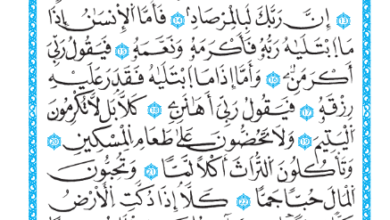 ١٣ إِنَّ رَبَّكَ لَبِالْمِرْصَادِ ١٤ فَأَمَّا الْإِنسَٰنُ إِذَا
مَا ابْتَلَىٰهُ رَبُّهُ فَأَكْرَمَهُ وَنَعَّمَهُ ١٥ فَيَقُولُ رَبِّيَ
أَكْرَمَنِۦ ١٦ وَأَمَّا إِذَا مَا ابْتَلَىٰهُ فَقَدَرَ عَلَيْهِ
رِزْقَهُ ١٧ فَيَقُولُ رَبِّيَ أَهَٰنَنِۦ ١٨ كَلَّا بَل لَّا تُكْرِمُونَ
الْيَتِيمَ ١٩ وَلَا تَحُضُّونَ عَلَىٰ طَعَامِ الْمِسْكِينِ ٢٠
وَتَأْكُلُونَ التُّرَاثَ أَكْلًا لَّمًّا ٢١ وَتُحِبُّونَ
الْمَالَ حُبًّا جَمًّا ٢٢ كَلَّا إِذَا دُكَّتِ الْأَرْضُ